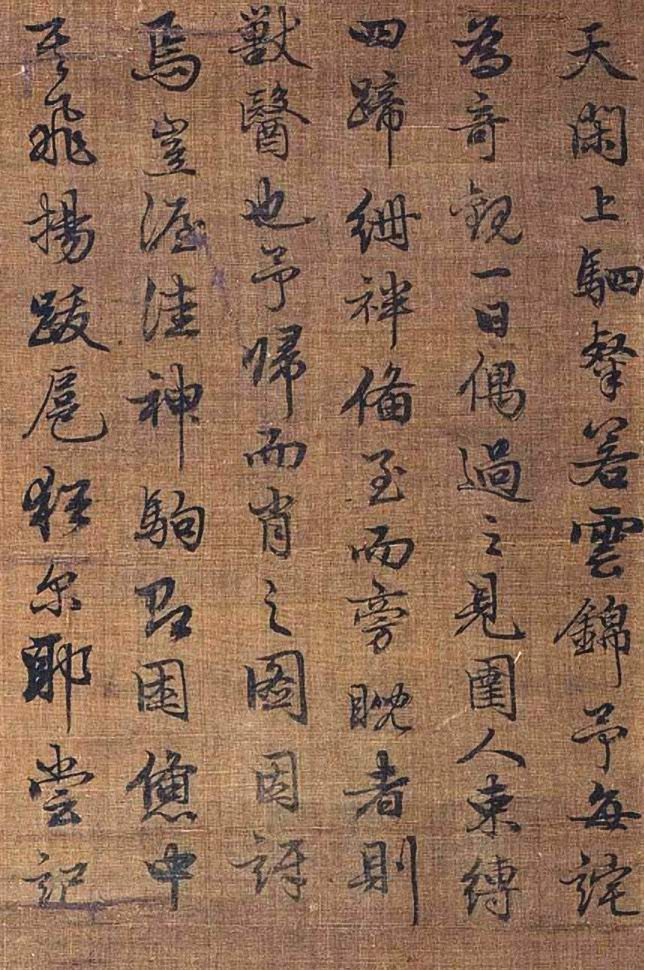 天閑上駟羣若雲錦予每詫
為奇觀一日偶過之見圉人束縛
四蹄紲袢俻至而旁睨者則
獸醫也予歸而肖之圖因訝
焉豈渥洼神駒㠯困憊中
其飛揚跋扈尔耶嘗記